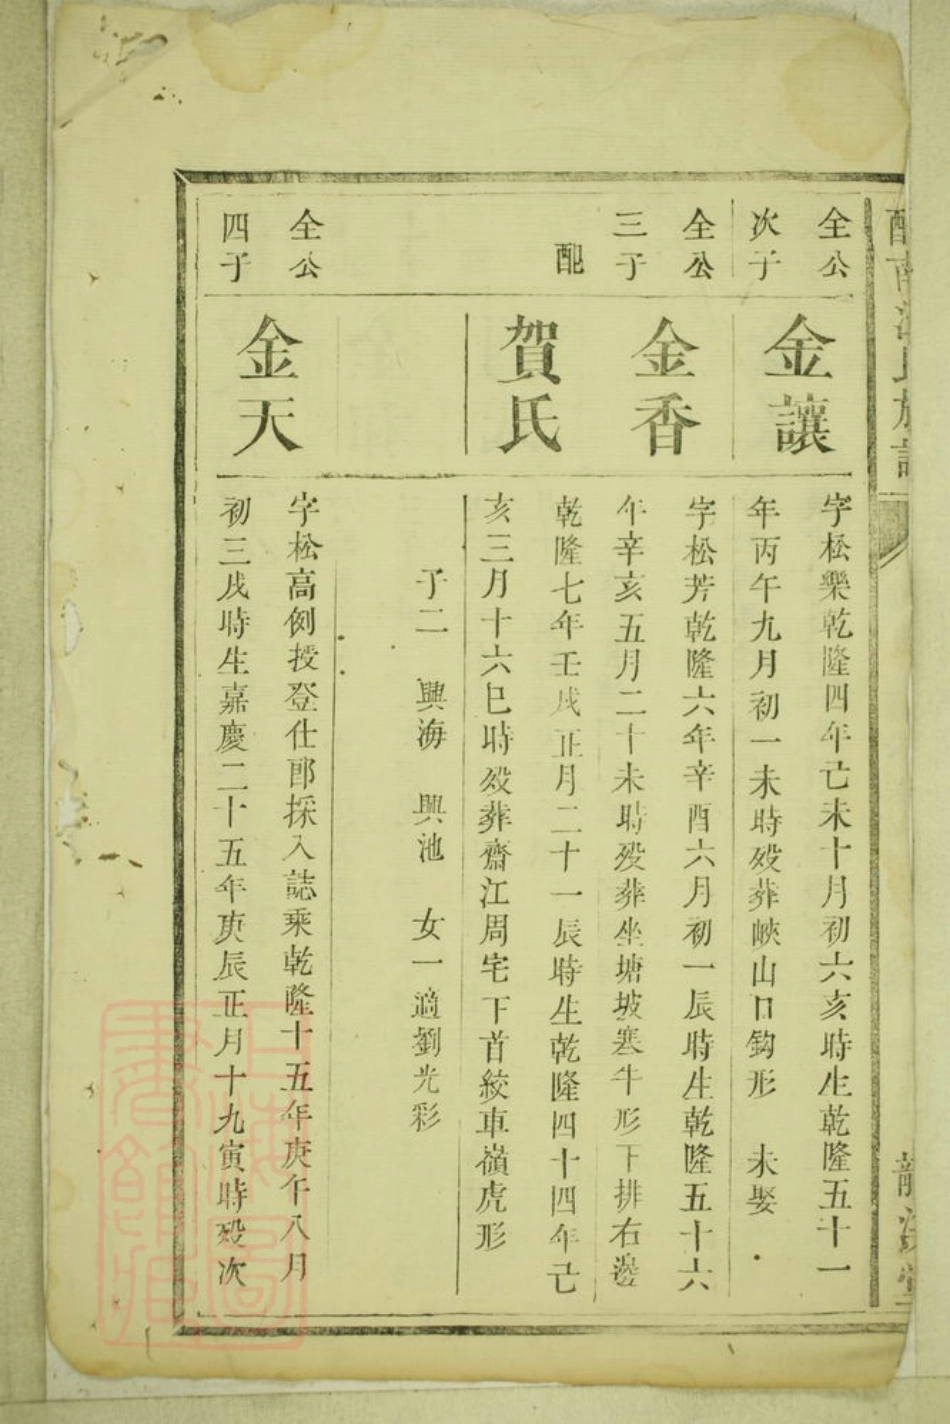 全公
次子
金讓
字松樂乾隆四年己未十月初六亥時生乾隆五十一
年丙午九月初一未時歿葬峽山口鈎形　未娶
全公
三子
金香
字松芳乾隆六年辛酉六月初一辰時生乾隆五十六
年辛亥五月二十未時歿葬坐塘坡寒牛形下排右邊
配
賀氏
乾隆七年壬戌正月二十一辰時生乾隆四十四年己
亥三月十六巳時歿葬齋江周宅下首絞車嶺虎形
子二　興海　興池　女一適劉光彩
全公
四子
金天
字松高例授登仕郎採入誌乘乾隆十五年庚午八月
初三戌時生嘉慶二十五年庚辰正月十九寅時歿次